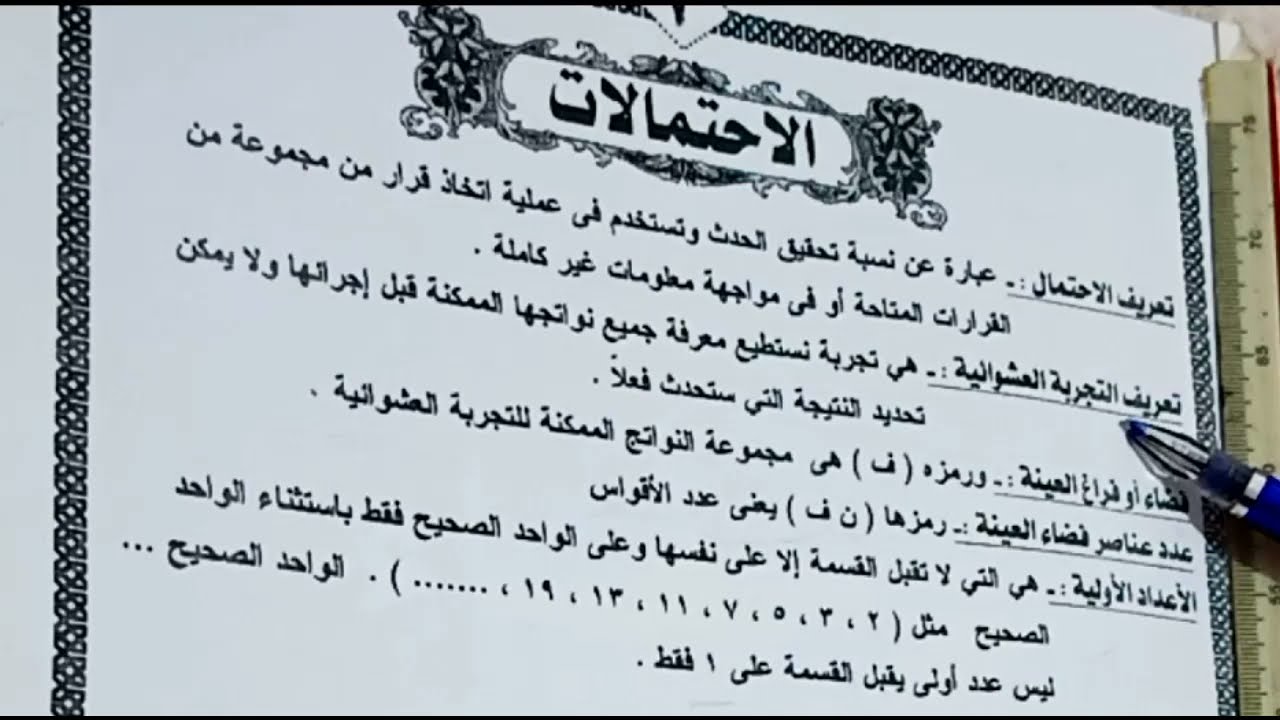 الاحتمالات
تعريف الاحتمال :ـ عبارة عن نسبة تحقيق الحدث وتستخدم فى عملية اتخاذ قرار من مجموعة من
القرارات المتاحة أو فى مواجهة معلومات غير كاملة .
تعريف التجربة العشوائية :ـ هي تجربة نستطيع معرفة جميع نواتجها الممكنة قبل إجرائها ولا يمكن
تحديد النتيجة التي ستحدث فعلاً .
فضاء أو فراغ العينة :ـ ورمزه ( ف ) هى مجموعة النواتج الممكنة للتجربة العشوائية .
عدد عناصر فضاء العينة :ـ رمزها ( ن ف ) يعنى عدد الأقواس
الأعداد الأولية :ـ هي التي لا تقبل القسمة إلا على نفسها وعلى الواحد الصحيح فقط باستثناء الواحد
الصحيح مثل ( ٢ ، ٣ ، ٥ ، ٧ ، ١١ ، ١٣ ، ١٩ ، ....... ) . الواحد الصحيح ...
ليس عدد أولى يقبل القسمة على ١ فقط .